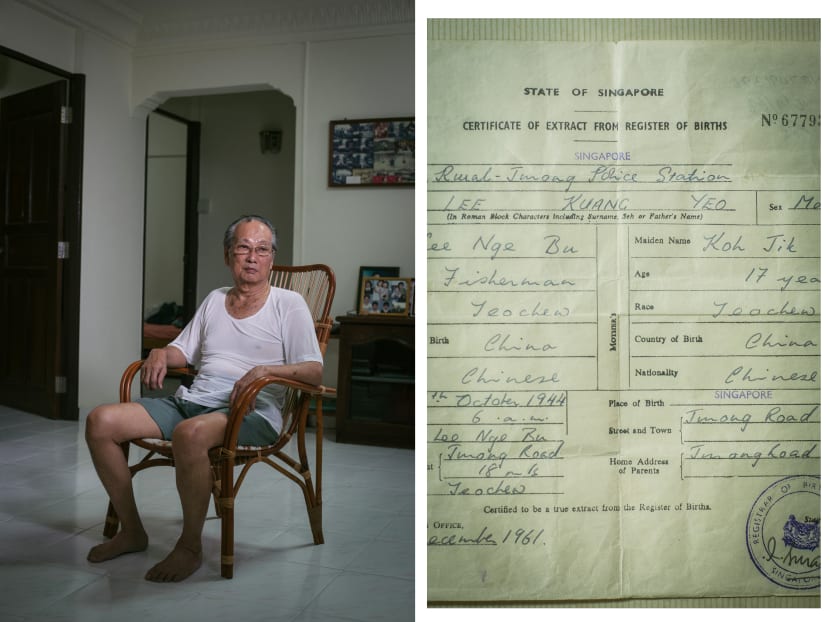 STATE OF SINGAPORE
CERTIFICATE OF EXTRACT FROM REGISTER OF BIRTHS
Nº 6779
SINGAPORE
Rural-Jurong Police Station
LEE KUANG YEO
Sex
(In Roman Block Characters Including Surname, Seh or Father's Name)
ee Nge Bu
Maiden Name Koh Jik
Fisherman
Age 17 yea
Teochew
Race Teochew
MOTHER'S
Birth China
Country of Birth China
Chinese
Nationality Chinese
th October 1944
SINGAPORE
Place of Birth
6 a.m.
Street and Town Jurong Road
Lee Nge Bu
Jurong Road
Home Address of Parents Jurong Road
18 m/s
Teochew
Certified to be a true extract from the Register of Births.
OFFICE,
ecember 1961.
REGISTRAR OF BIR
SINGAPO